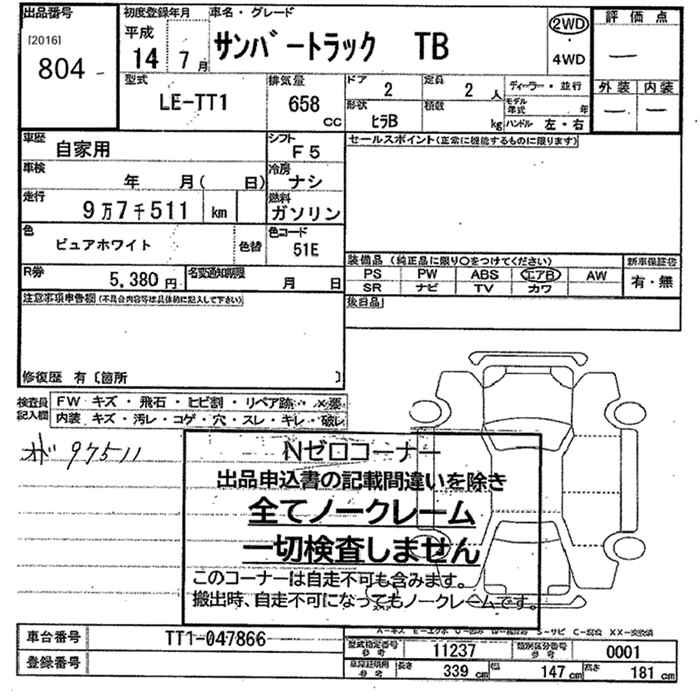 出品番号 初度登録年月 車名・グレード 2WD 評価点
[2016] 平成 ・ 一
804 14 7月 サンバートラック TB 4WD 外装 内装
型式 排気量 ドア 定員 ディーラー・並行 一 一
LE-TT1 658 cc 2 2人 モデル年式 年
形状 積載 kg ハンドル 左・右
ヒラB
車歴 自家用 シフト F5 セールスポイント(正常に機能するものに限ります)
車検 年 月( 日) 冷房 ナシ
走行 9万7千511 km 燃料 ガソリン
色 ピュアホワイト 色替 色コード 51E
装備品 (純正品に限り○をつけてください) 新車保証書
R券 5,380円 名変通知期限 月 日 PS PW ABS エアB AW 有・無
SR ナビ TV カワ
注意事項申告欄(不具合内容等は具体的に記入して下さい) 後日品
修復歴 有〔箇所 〕
検査員記入欄 FW キズ・飛石・ヒビ割・リペア跡・×要
内装 キズ・汚レ・コゲ・穴・スレ・キレ・破レ
オド 97511
Nゼロコーナー
出品申込書の記載間違いを除き
全てノークレーム
一切検査しません
このコーナーは自走不可も含みます。
搬出時、自走不可になってもノークレームです。
A-キズ E-エクボ
車台番号 TT1-047866 型式指定番号 参考 11237 類別区分番号 参考 0001
登録番号 長さ 339 cm 幅 147 cm 高さ 181 cm